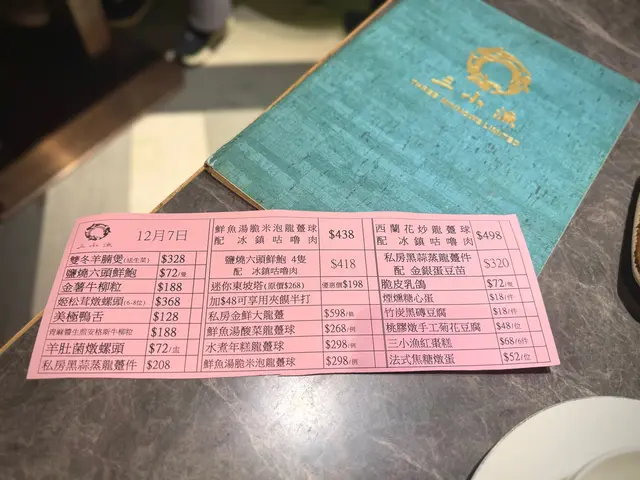 三小漁
THREE JUNCIONS LIMITED
三小漁
12月7日
雙冬羊腩煲(送生菜) $328
鹽燒六頭鮮鮑 $72/隻
金薯牛柳粒 $188
姬松茸燉螺頭(6-8位) $368
美極鴨舌 $128
青麻醬生煎安格斯牛柳粒 $188
羊肚菌燉螺頭 $72/位
私房黑蒜蒸龍躉件 $208
鮮魚湯脆米泡龍躉球
配 冰鎮咕嚕肉 $438
鹽燒六頭鮮鮑 4隻
配 冰鎮咕嚕肉 $418
迷你東坡塔(原價$268) 優惠價$198
加$48可享用夾饃半打
私房金鮮大龍躉 $598/例
鮮魚湯酸菜龍躉球 $268/例
水煮年糕龍躉球 $298/例
鮮魚湯脆米泡龍躉球 $298/例
西蘭花炒龍躉球
配 冰鎮咕嚕肉 $498
私房黑蒜蒸龍躉件
配 金銀蛋豆苗 $320
脆皮乳鴿 $72/隻
煙燻糖心蛋 $18/件
竹炭黑磚豆腐 $18/件
桃膠燉手工菊花豆腐 $48/位
三小漁紅棗糕 $68/6件
法式焦糖燉蛋 $52/位